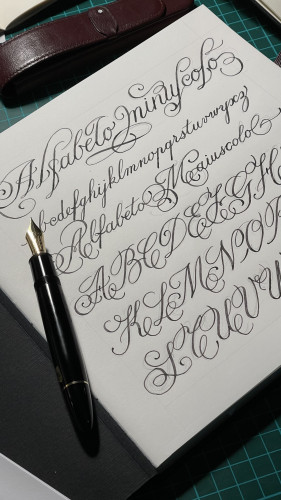 Alfabeto minuscolo
abcdefghijklmnopqrstuvwxyz
Alfabeto Maiuscolo
ABCDEFGH
KLMNOP
STUV